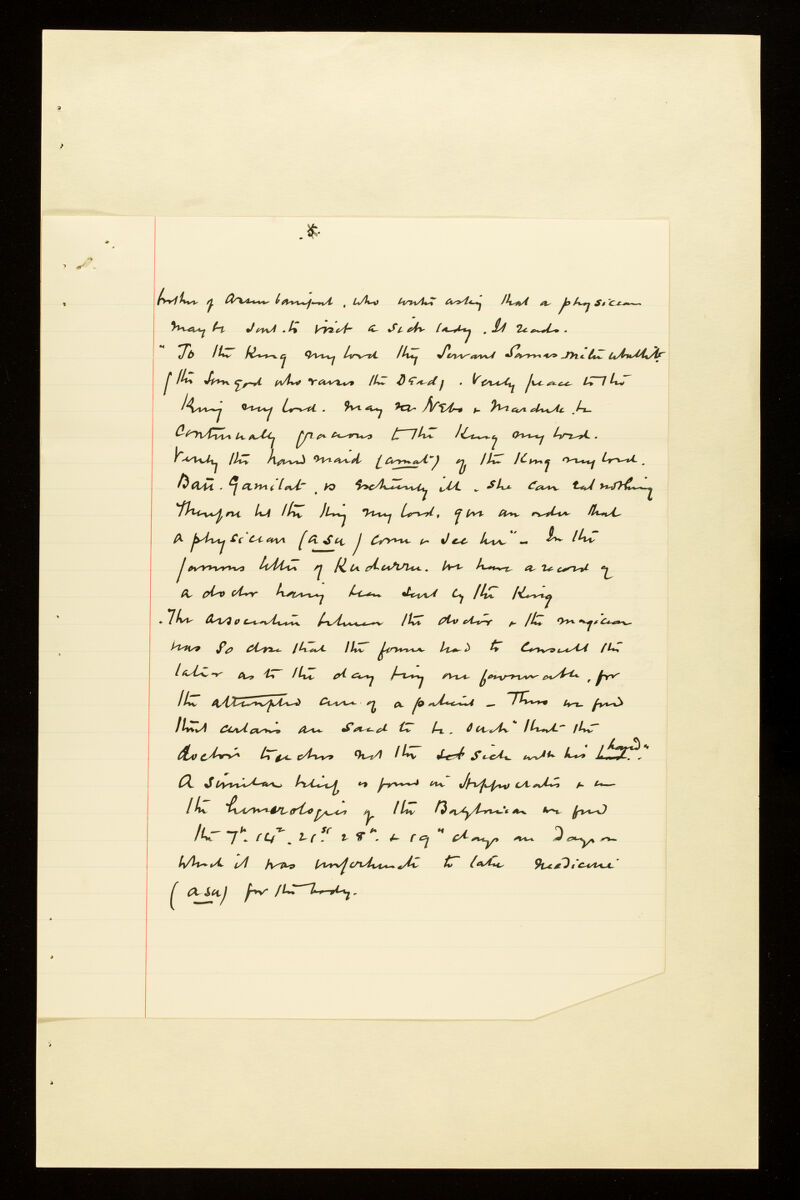 .5.
brother of Assurbanipal, who writes asking that a physician
may be sent to visit a sick lady. It reads.
"To the King my lord thy Servant Samas mitu uballit
(the Sun god who raises the Dead). Verily peace to the
King my lord. May Nebo & Marduk be
Continually gracious to the King my lord.
Verily the hand maid (amat) of the King my lord.
Bau. Gamilat, is extremely ill. She can eat nothing
Therefore let the King my lord, give an order that
a physician (asu) come & see her" - In the
famous letter of Kudurru. we have a record of
a doctor having been sent by the King
. The association between the doctor & the magician
was so close that the former had to consult the
latter as to the day being one favourable, for
the attempted cure of a patient - Thus we find
that certain are said to be. such "that the
doctor touches not the sick with his hand".
A similar belief is found in Hippocrates & in
the hemerologies of the Babylonian we find
the 7th. 14th. 21st. 28th. & 19th days are Days on
which it was unfortunate to take medicine
(asu) for the body.